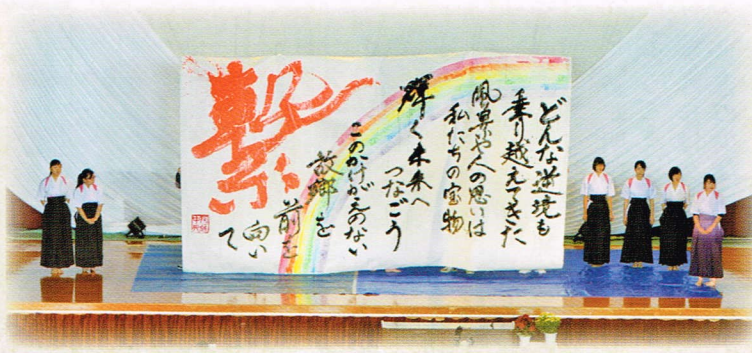 どんな逆境も
乗り越えてきた
風景や人の思いは
私たちの宝物
輝く未来へ
つなごう
このかけがえのない
故郷を
前を
向いて
繋